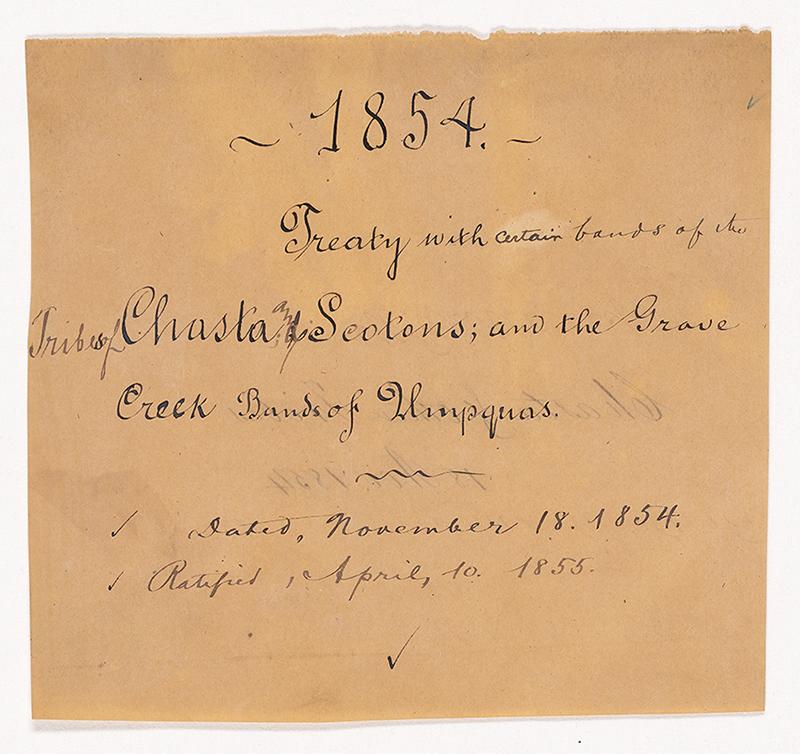 ~ 1854. ~
Treaty with certain bands of the
Tribes of Chasta and Scotons; and the Grave
Creek Bands of Umpquas.
✓ Dated, November 18. 1854.
✓ Ratified, April, 10. 1855.
✓